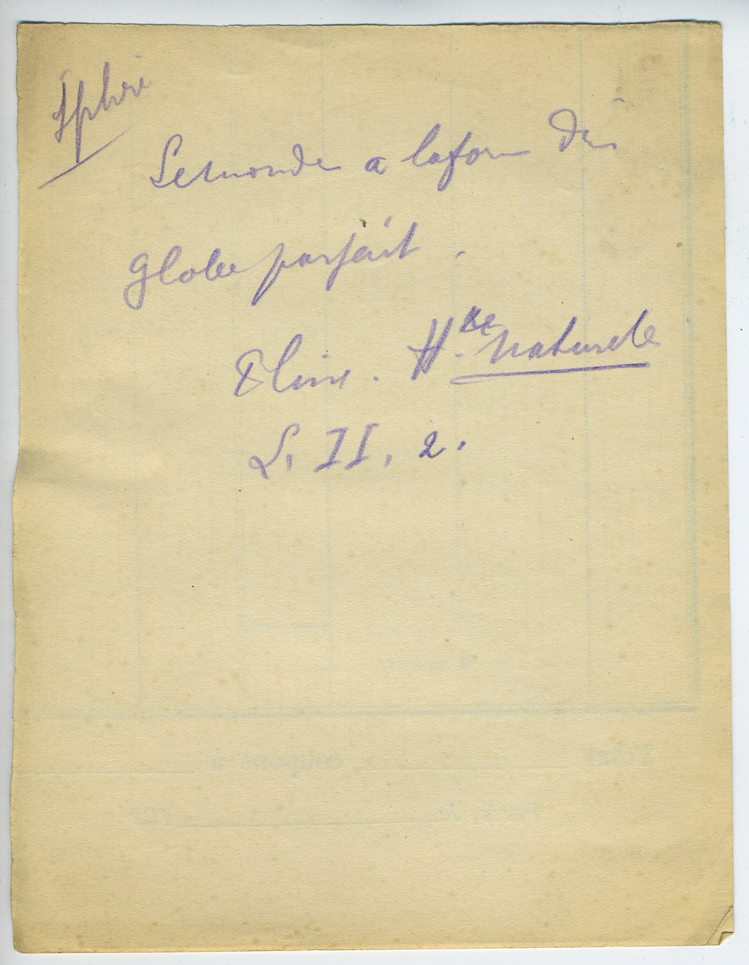 Sphère
Le monde a la forme d'un
globe parfait.
Pline. H^re naturelle
L. II, 2.